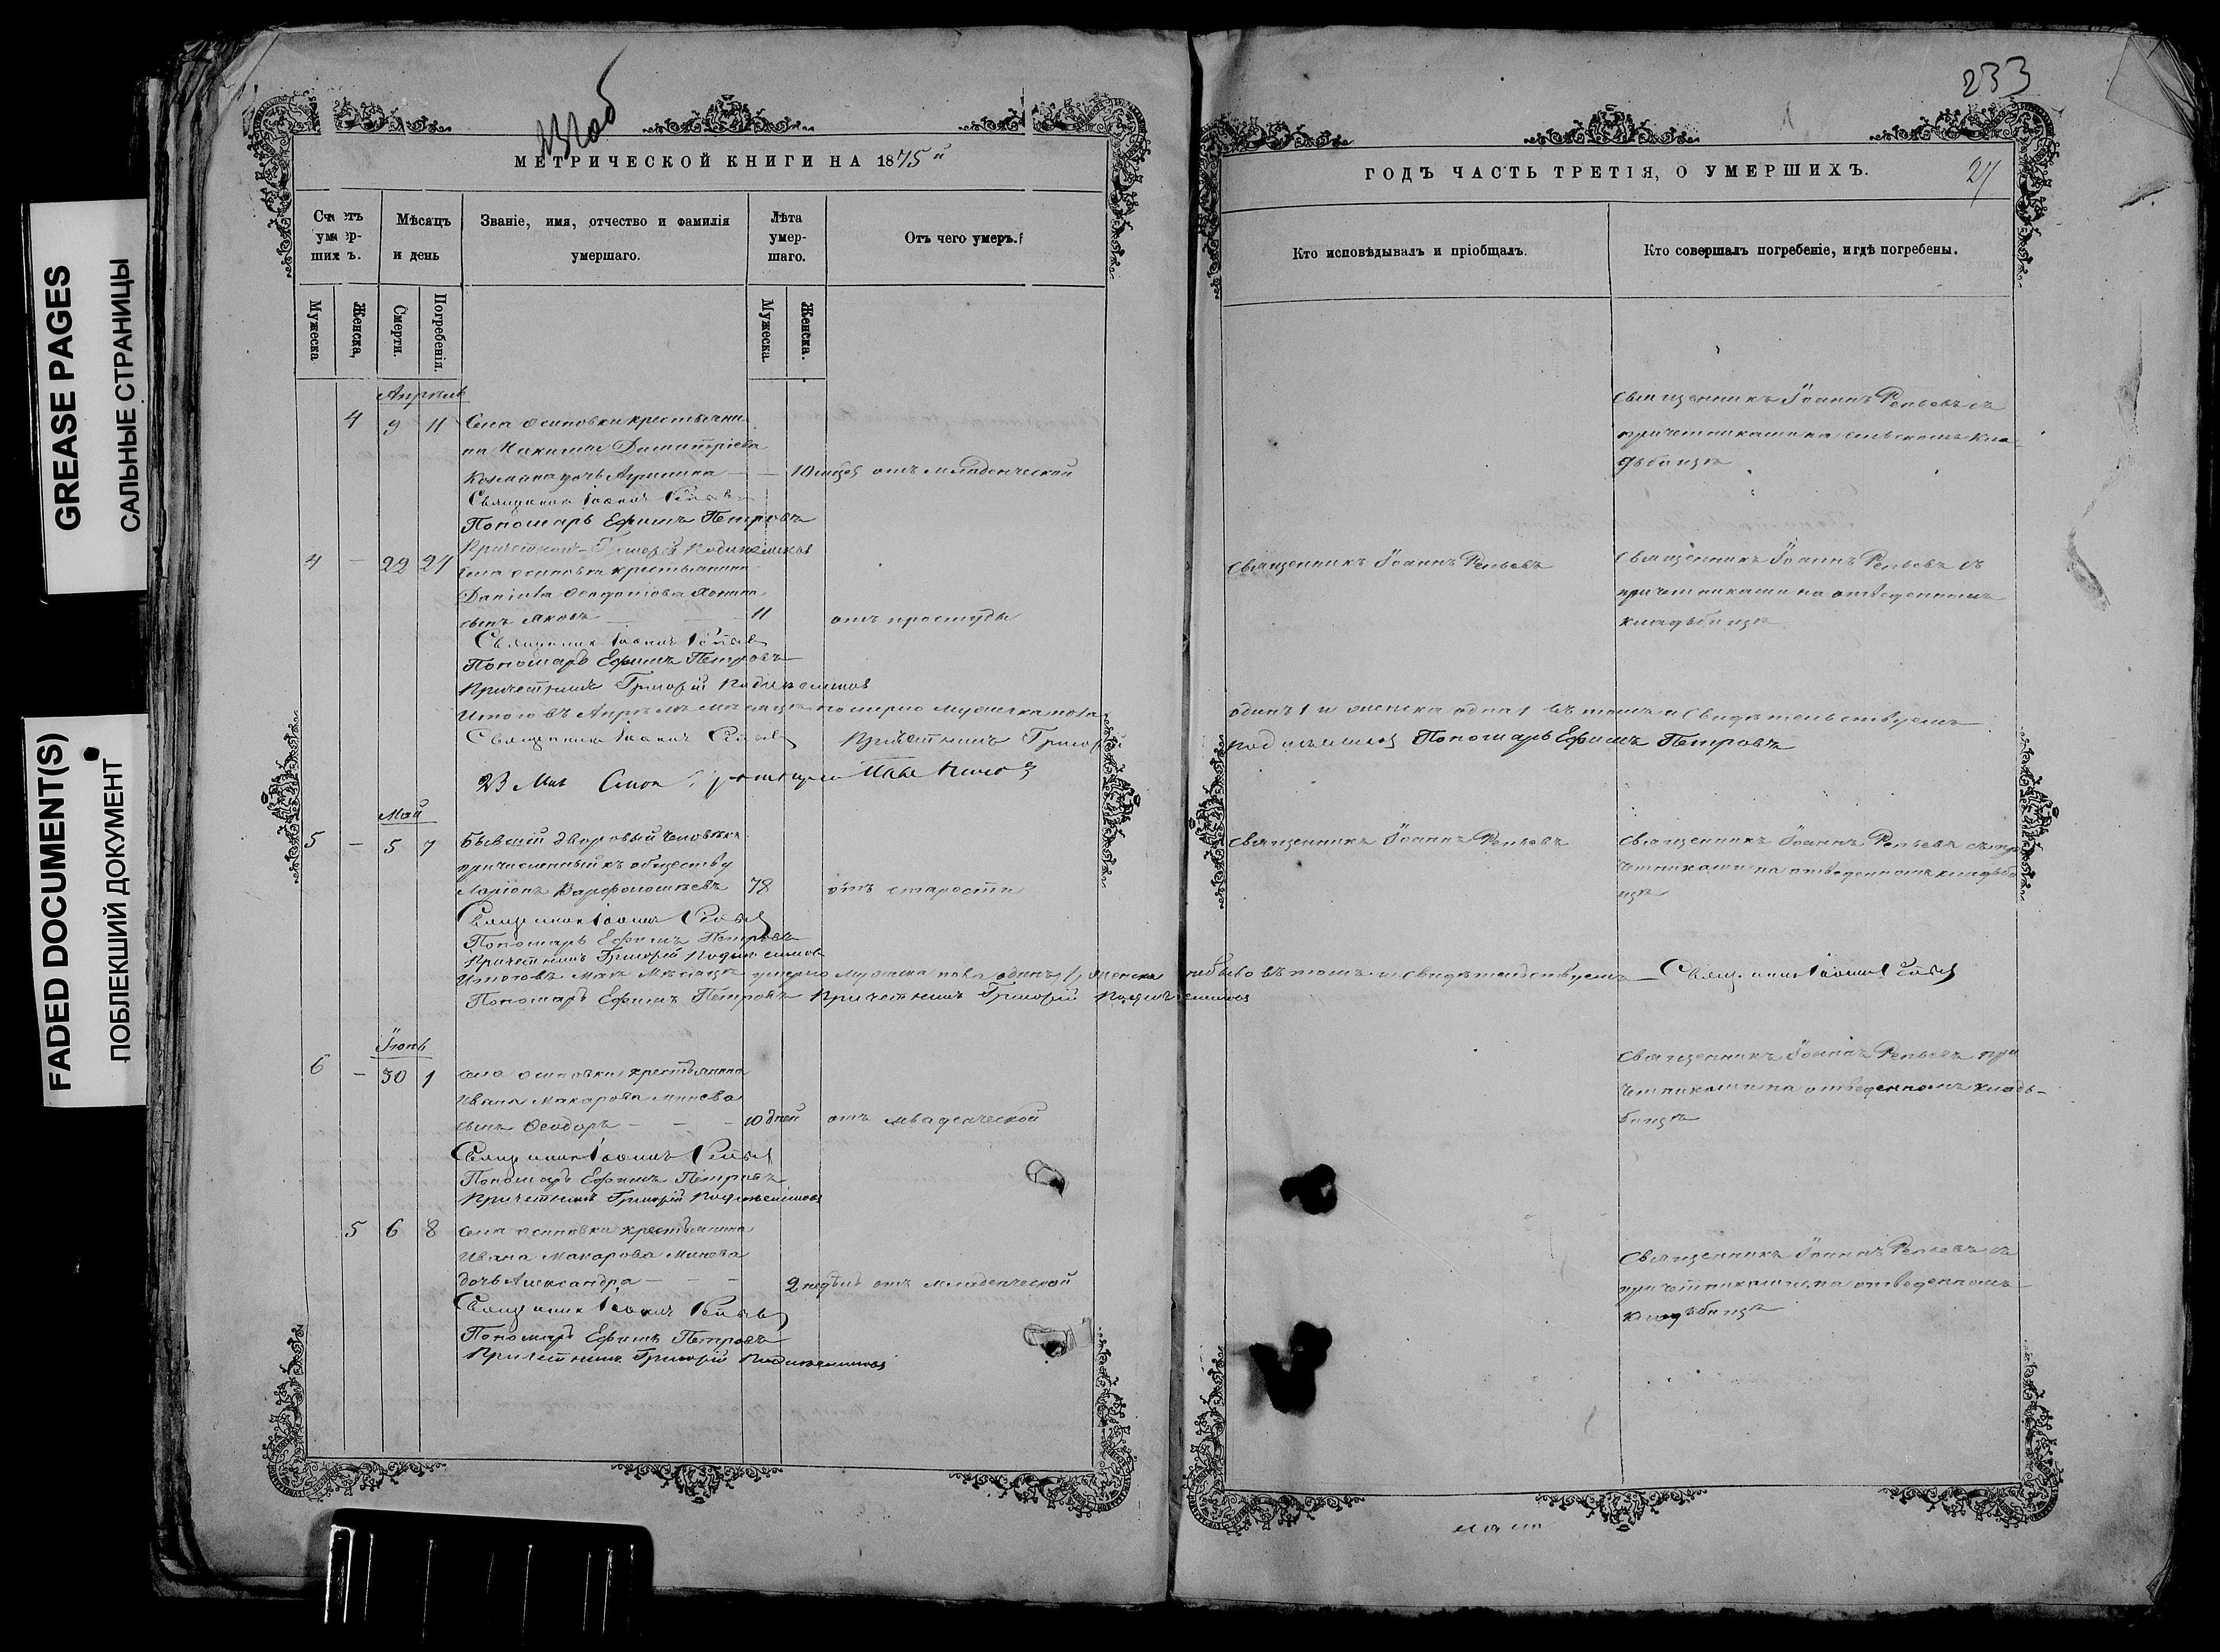 GREASE PAGES
САЛЬНЫЕ СТРАНИЦЫ
FADED DOCUMENT(S)
ПОБЛЕКШИЙ ДОКУМЕНТ
МЕТРИЧЕСКОЙ КНИГИ НА 1875й
Счетъ умершихъ.
Мѣсяцъ и день
Званіе, имя, отчество и фамилія умершаго.
Лѣта умершаго.
Отъ чего умеръ.
Мужеска
Женска,
Смерти.
Погребенія.
Мужеска.
Женска.
Апрѣль
4 9 11 Села Осиновки крестьяни
на Никиты Димитріева
дочь 10 отъ младенческой
Священникъ Іоаннъ Репьевъ
Пономарь Ефимъ Петровъ
Причетникъ Григорій
4 – 22 24 Села Осиновки крестьянина
Даніила
сынъ Яковъ – – 11 отъ простуды
Священникъ Іоаннъ Репьевъ
Пономарь Ефимъ Петровъ
Причетникъ Григорій
Итого въ Апрѣлѣ мѣсяцѣ померло мужеска пола
Священникъ Іоаннъ Репьевъ Причетникъ Григорій
23 Мая
Май
5 – 5 7 Бывшій дворовый человѣкъ
причисленный къ обществу
Ларіонъ Варфоломѣевъ 78 отъ старости
Священникъ Іоаннъ Репьевъ
Пономарь Ефимъ Петровъ
Причетникъ Григорій
Итого въ Маѣ мѣсяцѣ умерло мужеска пола одинъ, женска небыло въ томъ и свидѣтельствуемъ Священникъ Іоаннъ Репьевъ
Пономарь Ефимъ Петровъ Причетникъ Григорій
Іюнь
6 – 30 1 Села Осиновки крестьянина
Ивана Макарова Минева
сынъ Ѳеодоръ – – – 10 дней отъ младенческой
Священникъ Іоаннъ Репьевъ
Пономарь Ефимъ Петровъ
Причетникъ Григорій
5 6 8 Села Осиновки крестьянина
Ивана Макарова Минева
дочь Александра – – – 2 недѣль отъ младенческой
Священникъ Іоаннъ Репьевъ
Пономарь Ефимъ Петровъ
Причетникъ Григорій
233
ГОДЪ ЧАСТЬ ТРЕТІЯ, О УМЕРШИХЪ.
27
Кто исповѣдывалъ и пріобщалъ.
Кто совершалъ погребеніе, и гдѣ погребены.
Священникъ Іоаннъ Репьевъ съ
причетниками на сельскомъ кла
дьбищѣ
Священникъ Іоаннъ Репьевъ
Священникъ Іоаннъ Репьевъ съ
причетниками на отведенномъ
кладьбищѣ
одинъ 1 и женска одна 1 въ томъ и свидѣтельствуемъ
Пономарь Ефимъ Петровъ
Священникъ Іоаннъ Репьевъ
Священникъ Іоаннъ Репьевъ съ при
четниками на отведенномъ кладьби
щѣ
Священникъ Іоаннъ Репьевъ при
четниками на отведенномъ кладь-
бищѣ
Священникъ Іоаннъ Репьевъ съ
причетниками на отведенномъ
кладьбищѣ